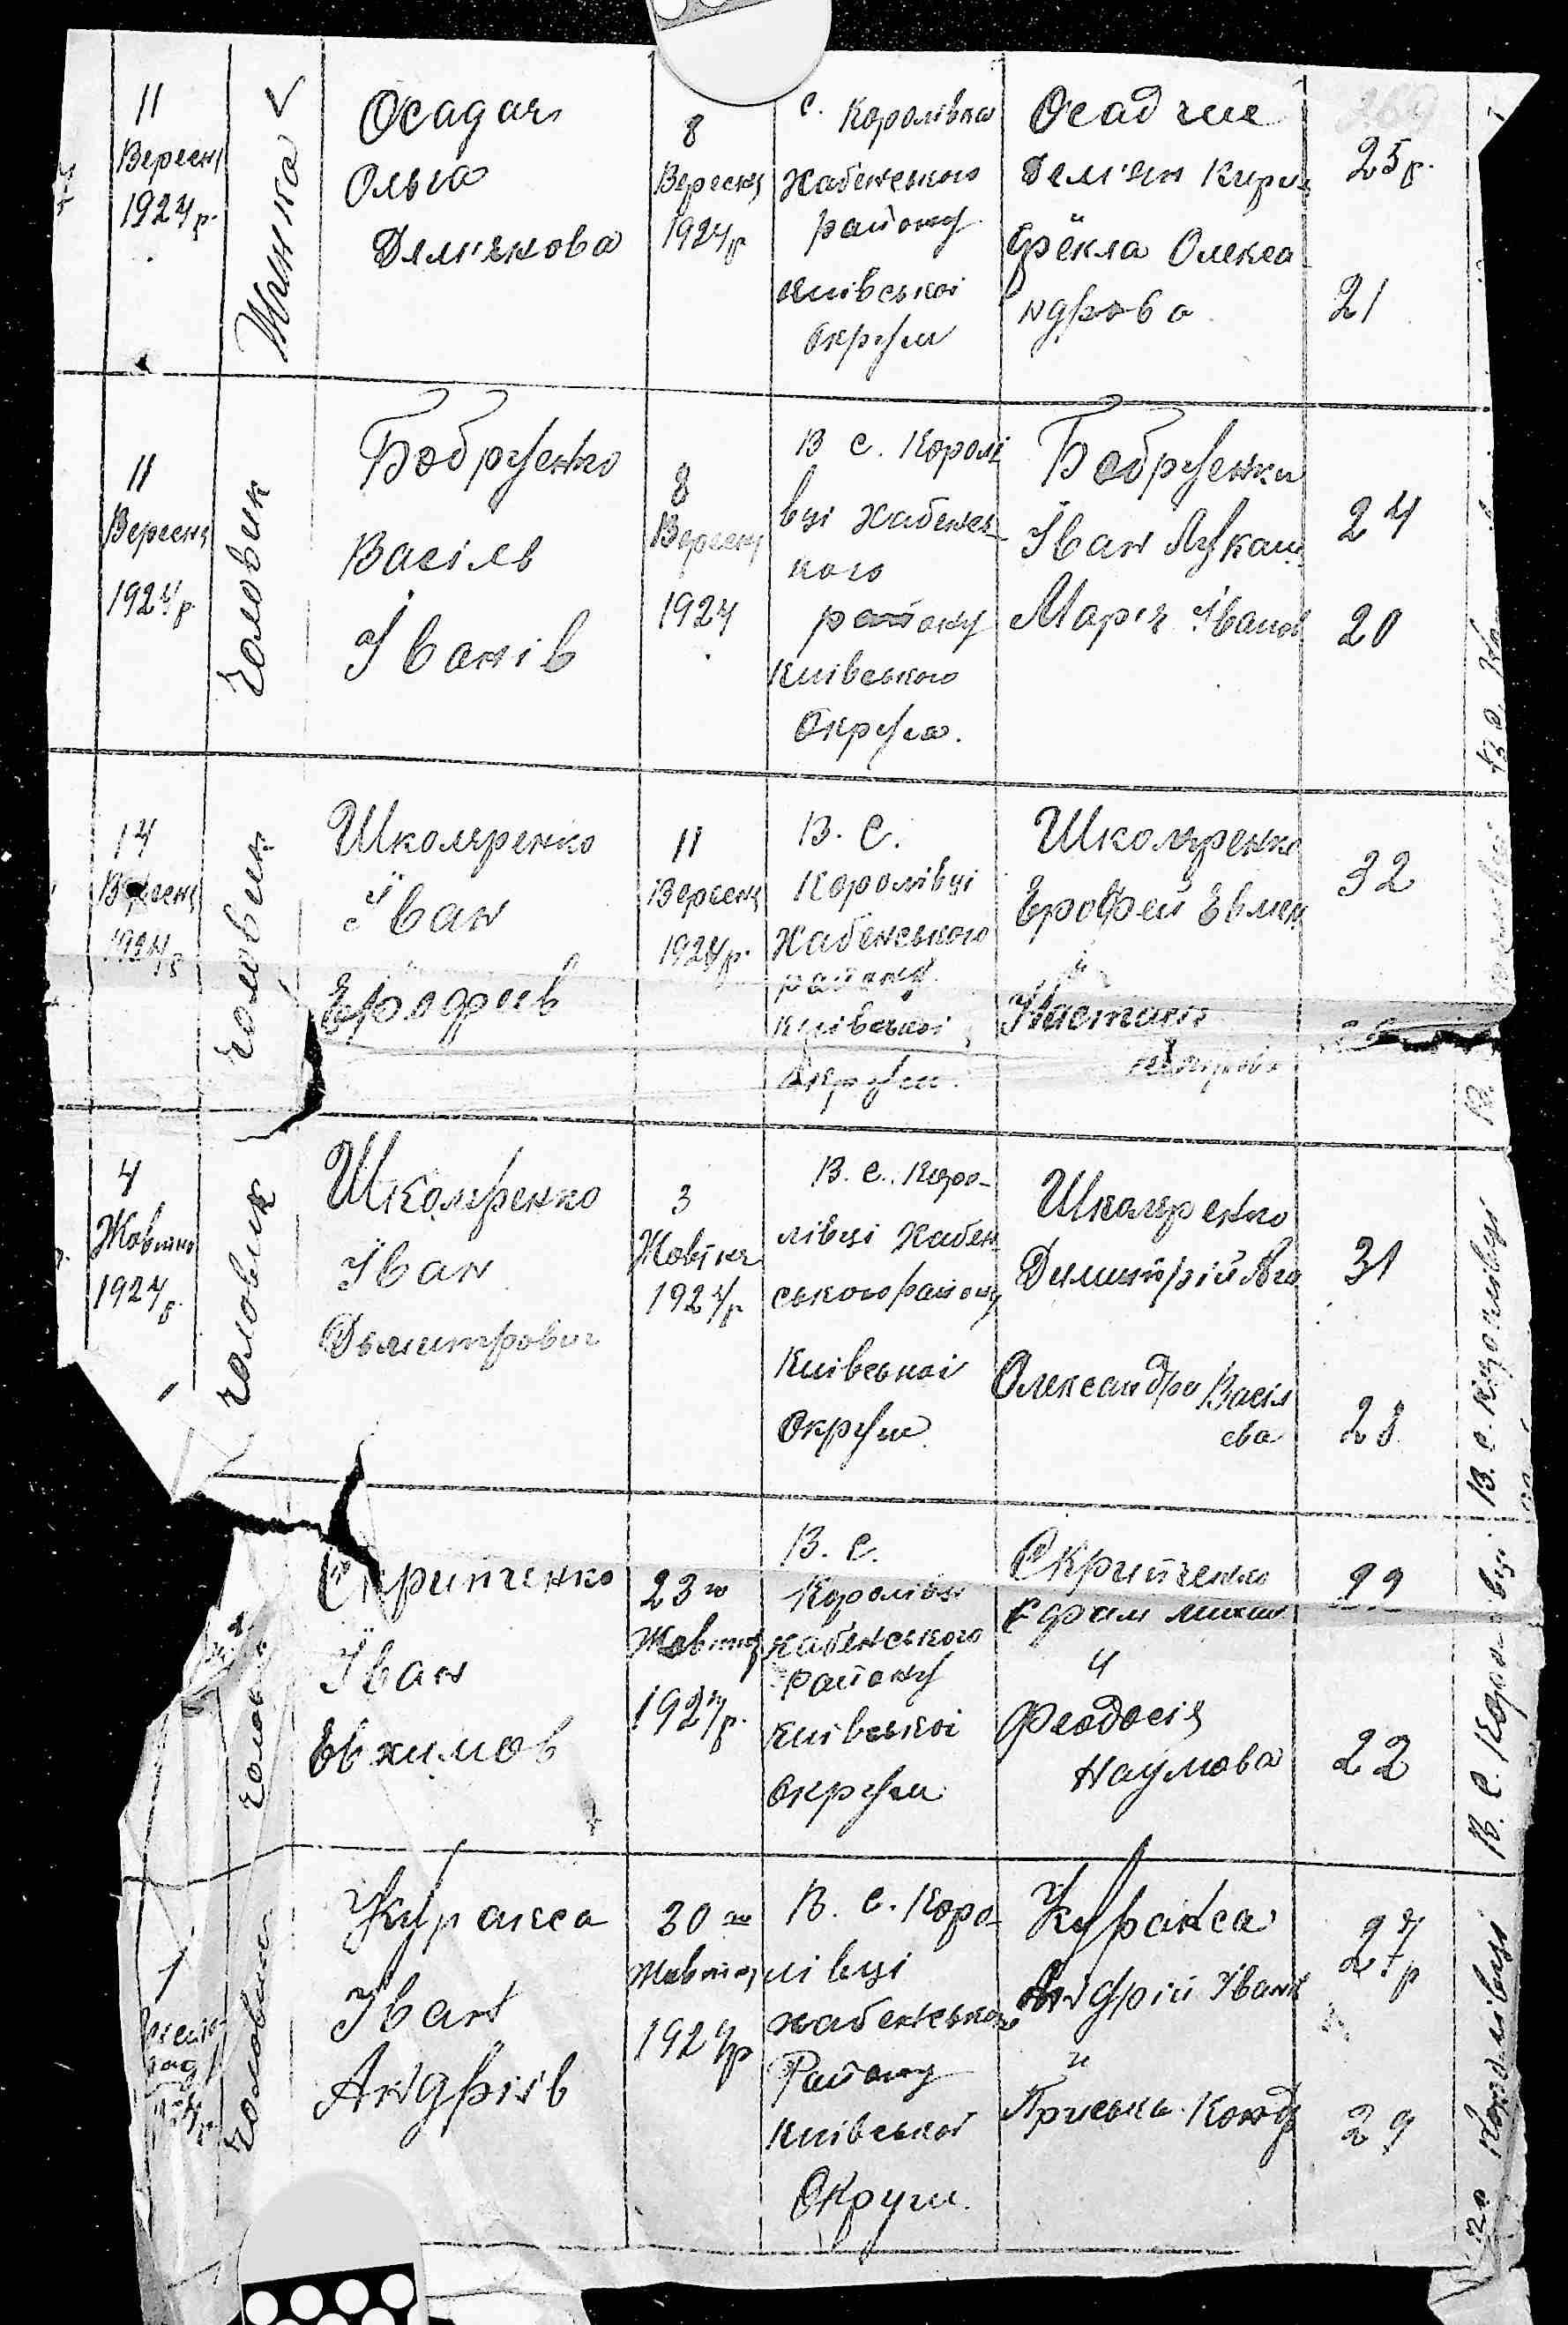 11
Вересня
1924 р.
Жинка
Осадча
Ольга
Демьянова
8
Вересня
1924 р
с. Королівка
Хабенського
району
Киівськоі
Округи
Осадчие
Демьян
Фёкла Олекса
ндрова
25 р.
21
11
Вересня
1924 р.
Чоловик
Бобруенко
Васіль
Іванів
8
Вересня
1924
В с. Королі
вці Хабенсь
кого
району
Киівського
Округа.
Бобруенки
Іван Лукаш
Мария Іванов
24
20
14
Вересня
1924 р
чоловик
Школяренко
Іван
Ерофиів
11
Вересня
1924 р.
В. С.
Королівці
Хабенського
району
Киівськоі
Округи.
Школяренко
Ерофей
и
Настасия
32
4
Жовтня
1924 р.
чоловик
Школяренко
Іван
Дьмитрович
3
Жовтня
1924 р
В. с. Коро-
лівці Хабен
ського району
Киівськоі
Округи
Школяренко
Димитрій
Олександра Васіл
ева
31
28
чоловик
Скрипченко
Іван
Евхимов
23 го
Жовтня
1924 р.
В. С.
Королівці
хабенського
Району
Киівськоі
Округи
Скрипченко
Ефрам
и
Феодосія
Наумова
22
22
1
чоловик
Куракса
Іван
Андріів
30 го
Жовтня
1924 р
В. с. Коро-
лівці
хабенського
Району
Киівськоі
Округи.
Куракса
Андрій Іванів
и
Приська Конд
27 р
29
В. с. Королівці